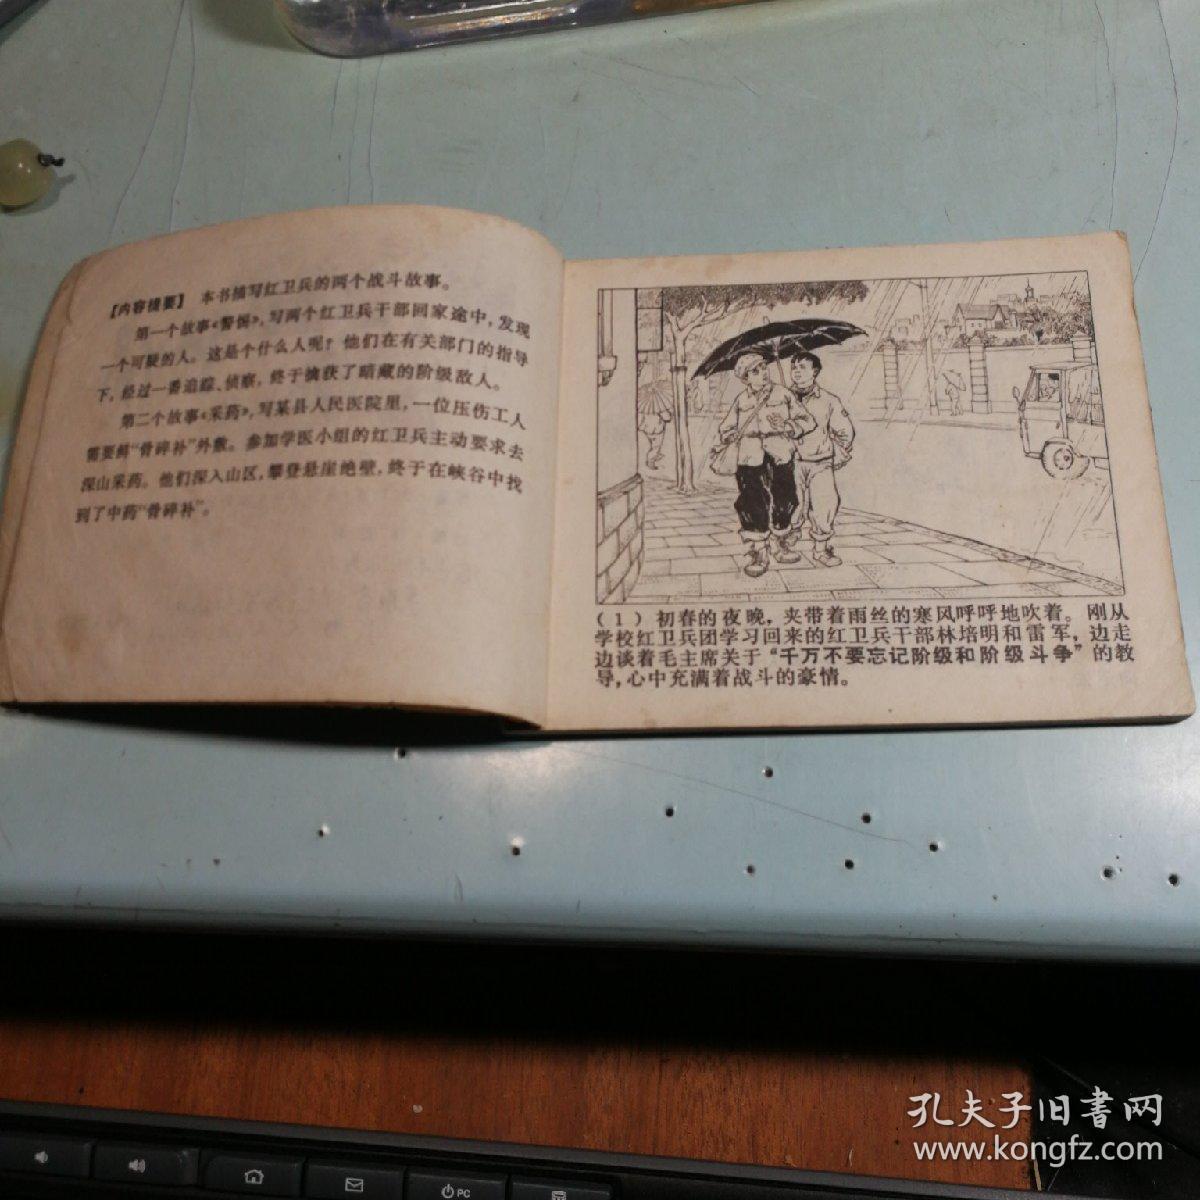 【内容提要】 本书描写红卫兵的两个战斗故事。
第一个故事《警惕》，写两个红卫兵干部回家途中，发现
一个可疑的人。这是个什么人呢？他们在有关部门的指导
下，经过一番追踪、侦察，终于擒获了暗藏的阶级敌人。
第二个故事《采药》，写某县人民医院里，一位压伤工人
需要鲜“骨碎补”外敷。参加学医小组的红卫兵主动要求去
深山采药。他们深入山区，攀登悬崖绝壁，终于在峡谷中找
到了中药“骨碎补”。
（1）初春的夜晚，夹带着雨丝的寒风呼呼地吹着。刚从
学校红卫兵团学习回来的红卫兵干部林培明和雷军，边走
边谈着毛主席关于“千万不要忘记阶级和阶级斗争”的教
导，心中充满着战斗的豪情。
PC
孔夫子旧書网
www.kongfz.com